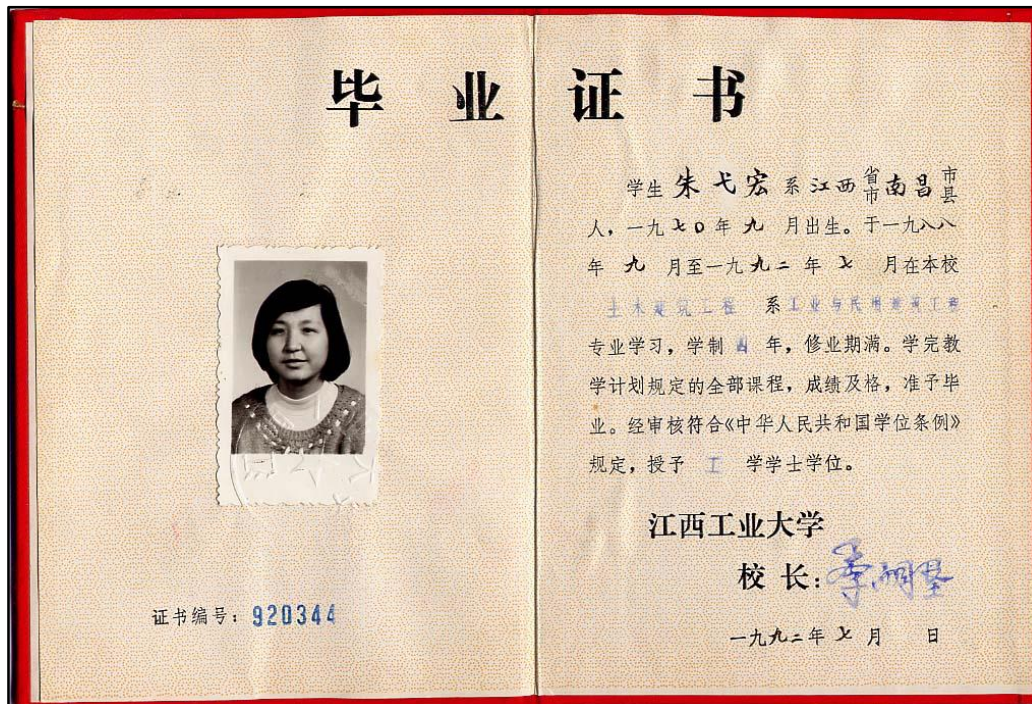 毕业证书
学生朱弋宏系江西省市南昌市县
人，一九七0年九 月出生。于一九八八
年 九 月至一九九二 年 七 月在本校
土木建筑工程 系工业与民用建筑工程
专业学习，学制 四 年，修业期满。学完教
学计划规定的全部课程，成绩及格，准予毕
业。经审核符合《中华人民共和国学位条例》
规定，授予 工 学学士学位。
江西工业大学
校 长：
证书编号：920344
一九九二年 七 月 日